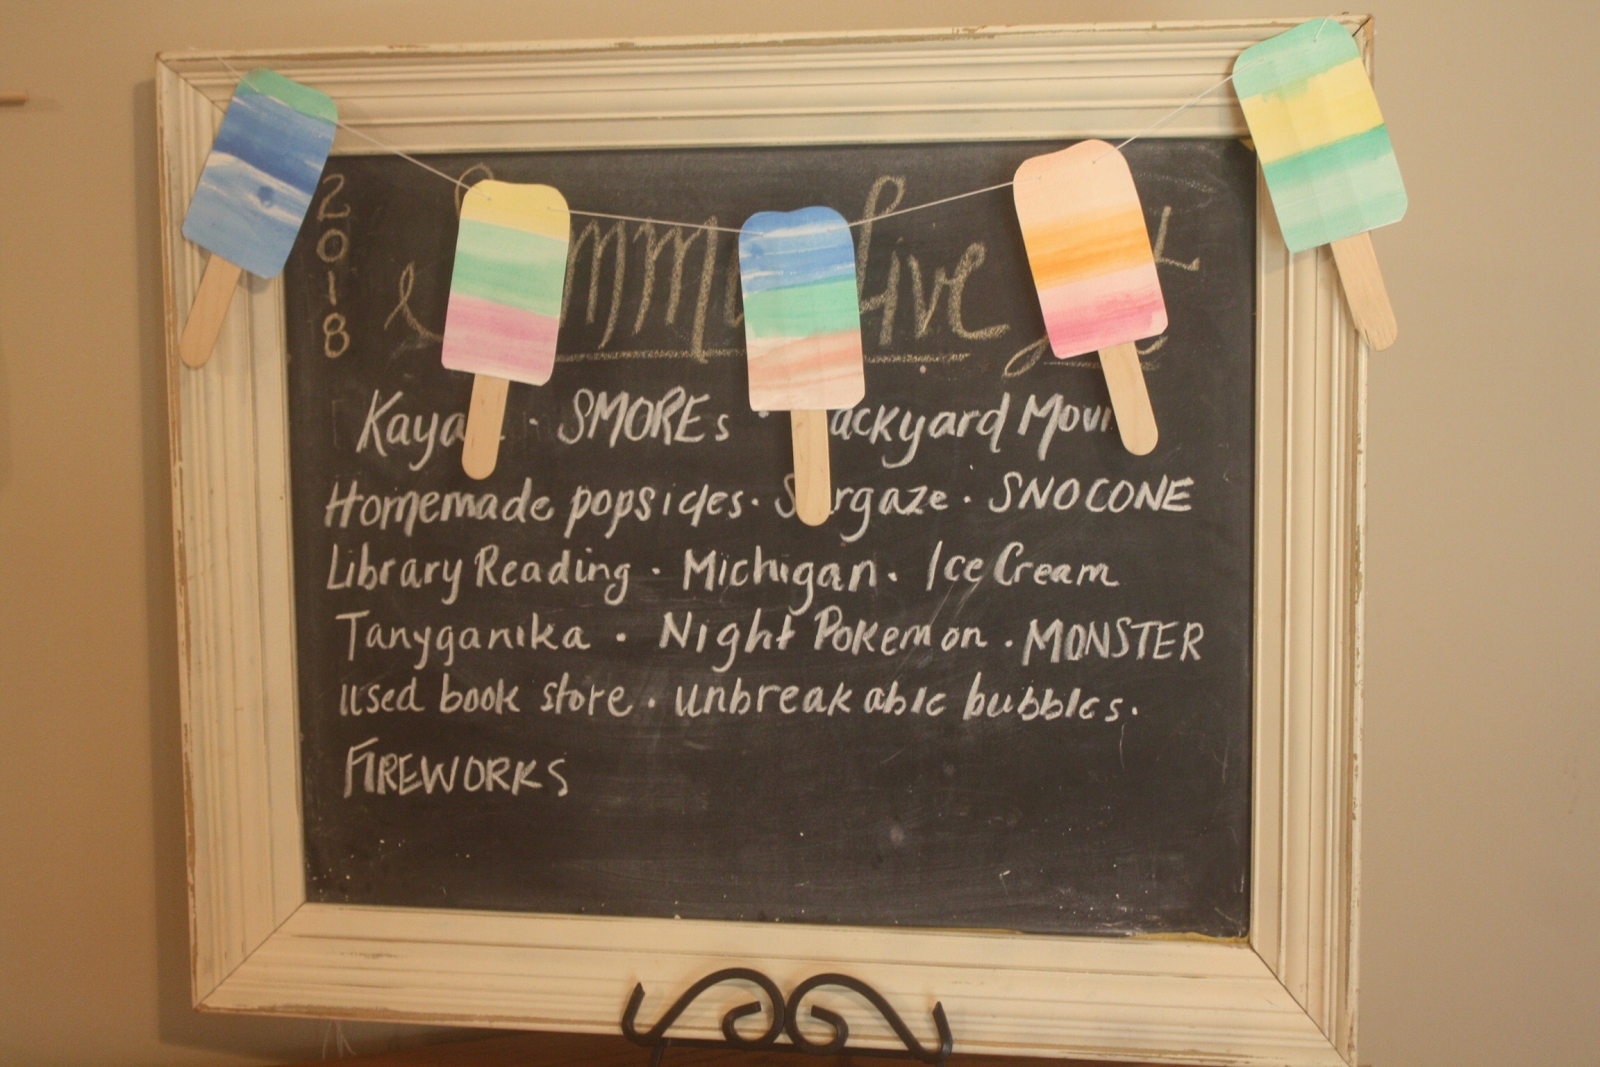 2018
Kaya · SMOREs · ackyard Mov
Homemade popsicles · S rgaze · SNOCONE
Library Reading · Michigan · Ice Cream
Tanyganika · Night Pokemon · MONSTER
used book store · unbreakable bubbles.
FIREWORKS